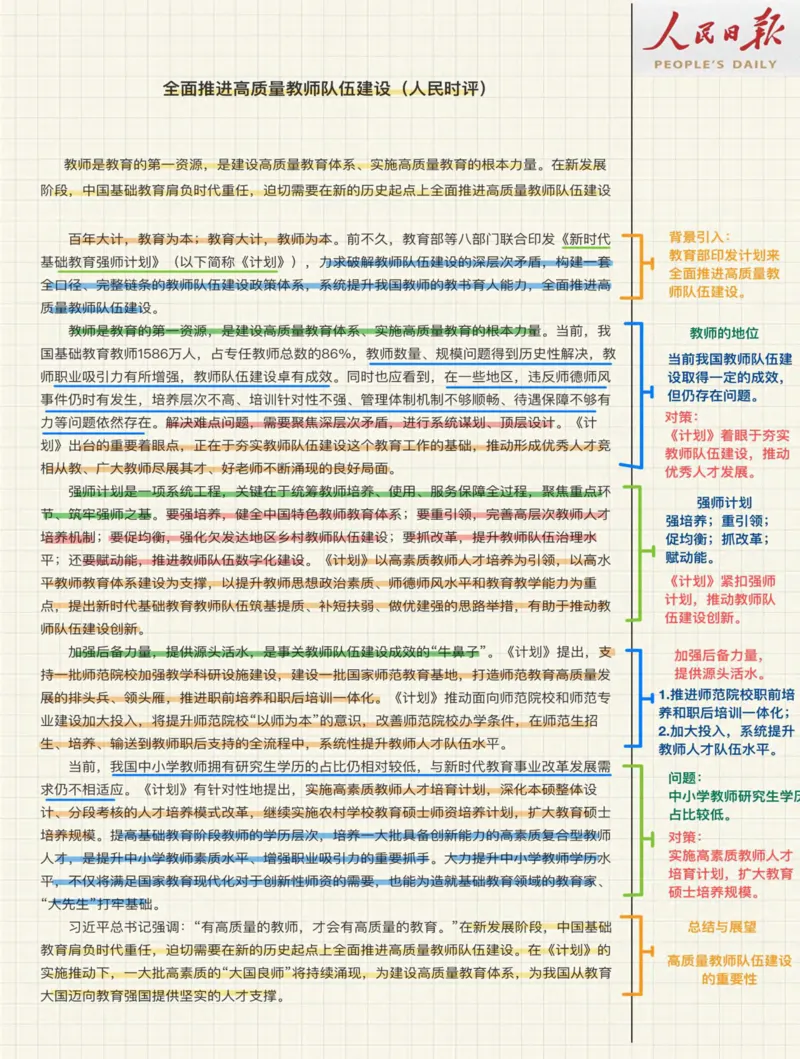 人民日報
PEOPLE'S DAILY
全面推进高质量教师队伍建设（人民时评）
教师是教育的第一资源，是建设高质量教育体系、实施高质量教育的根本力量。在新发展
阶段，中国基础教育肩负时代重任，迫切需要在新的历史起点上全面推进高质量教师队伍建设
百年大计，教育为本；教育大计，教师为本。前不久，教育部等八部门联合印发《新时代
基础教育强师计划》（以下简称《计划》），力求破解教师队伍建设的深层次矛盾，构建一套
全口径、完整链条的教师队伍建设政策体系，系统提升我国教师的教书育人能力，全面推进高
质量教师队伍建设。
教师是教育的第一资源，是建设高质量教育体系、实施高质量教育的根本力量。当前，我
国基础教育教师1586万人，占专任教师总数的86%，教师数量、规模问题得到历史性解决，教
师职业吸引力有所增强，教师队伍建设卓有成效。同时也应看到，在一些地区，违反师德师风
事件仍时有发生，培养层次不高、培训针对性不强、管理体制机制不够顺畅、待遇保障不够有
力等问题依然存在。解决难点问题，需要聚焦深层次矛盾，进行系统谋划、顶层设计。《计
划》出台的重要着眼点，正在于夯实教师队伍建设这个教育工作的基础，推动形成优秀人才竞
相从教、广大教师尽展其才、好老师不断涌现的良好局面。
强师计划是一项系统工程，关键在于统筹教师培养、使用、服务保障全过程，聚焦重点环
节、筑牢强师之基。要强培养，健全中国特色教师教育体系；要重引领，完善高层次教师人才
培养机制；要促均衡，强化欠发达地区乡村教师队伍建设；要抓改革，提升教师队伍治理水
平；还要赋动能，推进教师队伍数字化建设。《计划》以高素质教师人才培养为引领，以高水
平教师教育体系建设为支撑，以提升教师思想政治素质、师德师风水平和教育教学能力为重
点，提出新时代基础教育教师队伍筑基提质、补短扶弱、做优建强的思路举措，有助于推动教
师队伍建设创新。
加强后备力量，提供源头活水，是事关教师队伍建设成效的“牛鼻子”。《计划》提出，支
持一批师范院校加强教学科研设施建设，建设一批国家师范教育基地，打造师范教育高质量发
展的排头兵、领头雁，推进职前培养和职后培训一体化。《计划》推动面向师范院校和师范专
业建设加大投入，将提升师范院校“以师为本”的意识，改善师范院校办学条件，在师范生招
生、培养、输送到教师职后支持的全流程中，系统性提升教师人才队伍水平。
当前，我国中小学教师拥有研究生学历的占比仍相对较低，与新时代教育事业改革发展需
求仍不相适应。《计划》有针对性地提出，实施高素质教师人才培育计划，深化本硕整体设
计、分段考核的人才培养模式改革，继续实施农村学校教育硕士师资培养计划，扩大教育硕士
培养规模。提高基础教育阶段教师的学历层次，培养一大批具备创新能力的高素质复合型教师
人才，是提升中小学教师素质水平、增强职业吸引力的重要抓手。大力提升中小学教师学历水
平，不仅将满足国家教育现代化对于创新性师资的需要，也能为造就基础教育领域的教育家、
“大先生”打牢基础。
习近平总书记强调：“有高质量的教师，才会有高质量的教育。”在新发展阶段，中国基础
教育肩负时代重任，迫切需要在新的历史起点上全面推进高质量教师队伍建设。在《计划》的
实施推动下，一大批高素质的“大国良师”将持续涌现，为建设高质量教育体系，为我国从教育
大国迈向教育强国提供坚实的人才支撑。
背景引入：
教育部印发计划来
全面推进高质量教
师队伍建设。
教师的地位
当前我国教师队伍建
设取得一定的成效，
但仍存在问题。
对策：
《计划》着眼于夯实
教师队伍建设，推动
优秀人才发展。
强师计划
强培养；重引领；
促均衡；抓改革；
赋动能。
《计划》紧扣强师
计划，推动教师队
伍建设创新。
加强后备力量，
提供源头活水。
1.推进师范院校职前培
养和职后培训一体化；
2.加大投入，系统提升
教师人才队伍水平。
问题：
中小学教师研究生学历
占比较低。
对策：
实施高素质教师人才
培育计划，扩大教育
硕士培养规模。
总结与展望
高质量教师队伍建设
的重要性